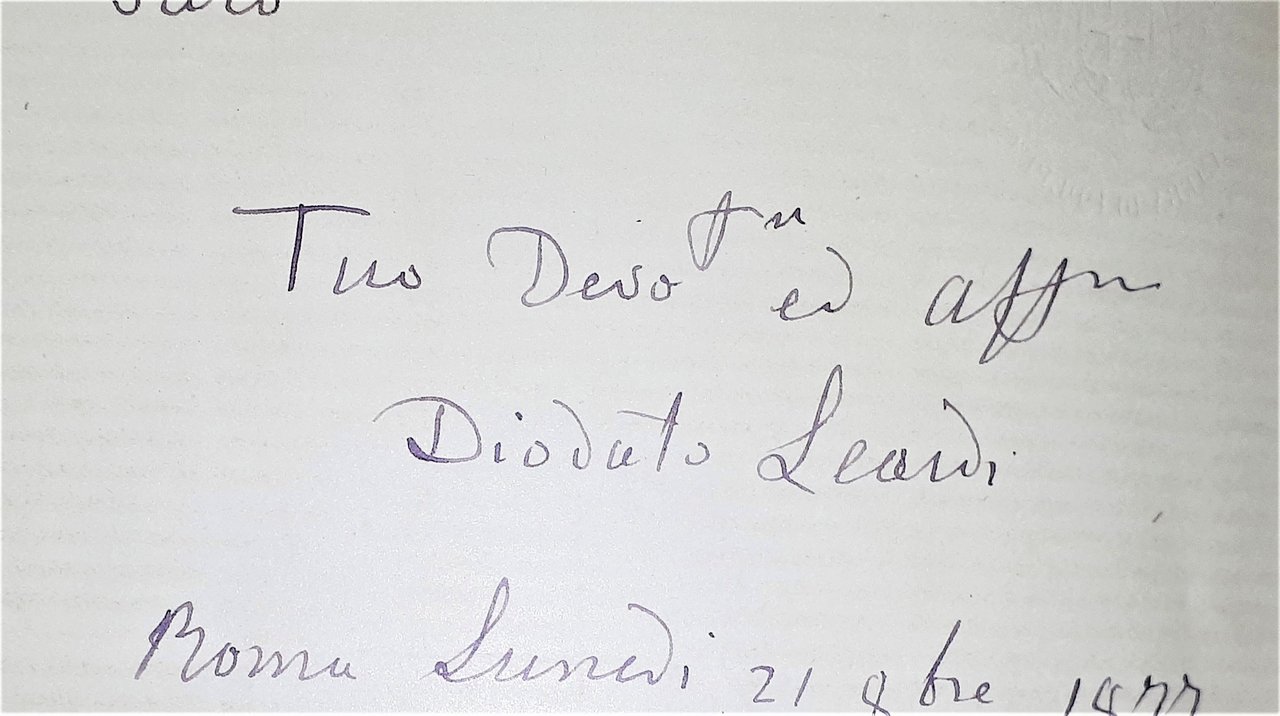 Tuo Devotm ed affm
Diodato Leardi
Roma Lunedi 21 8bre